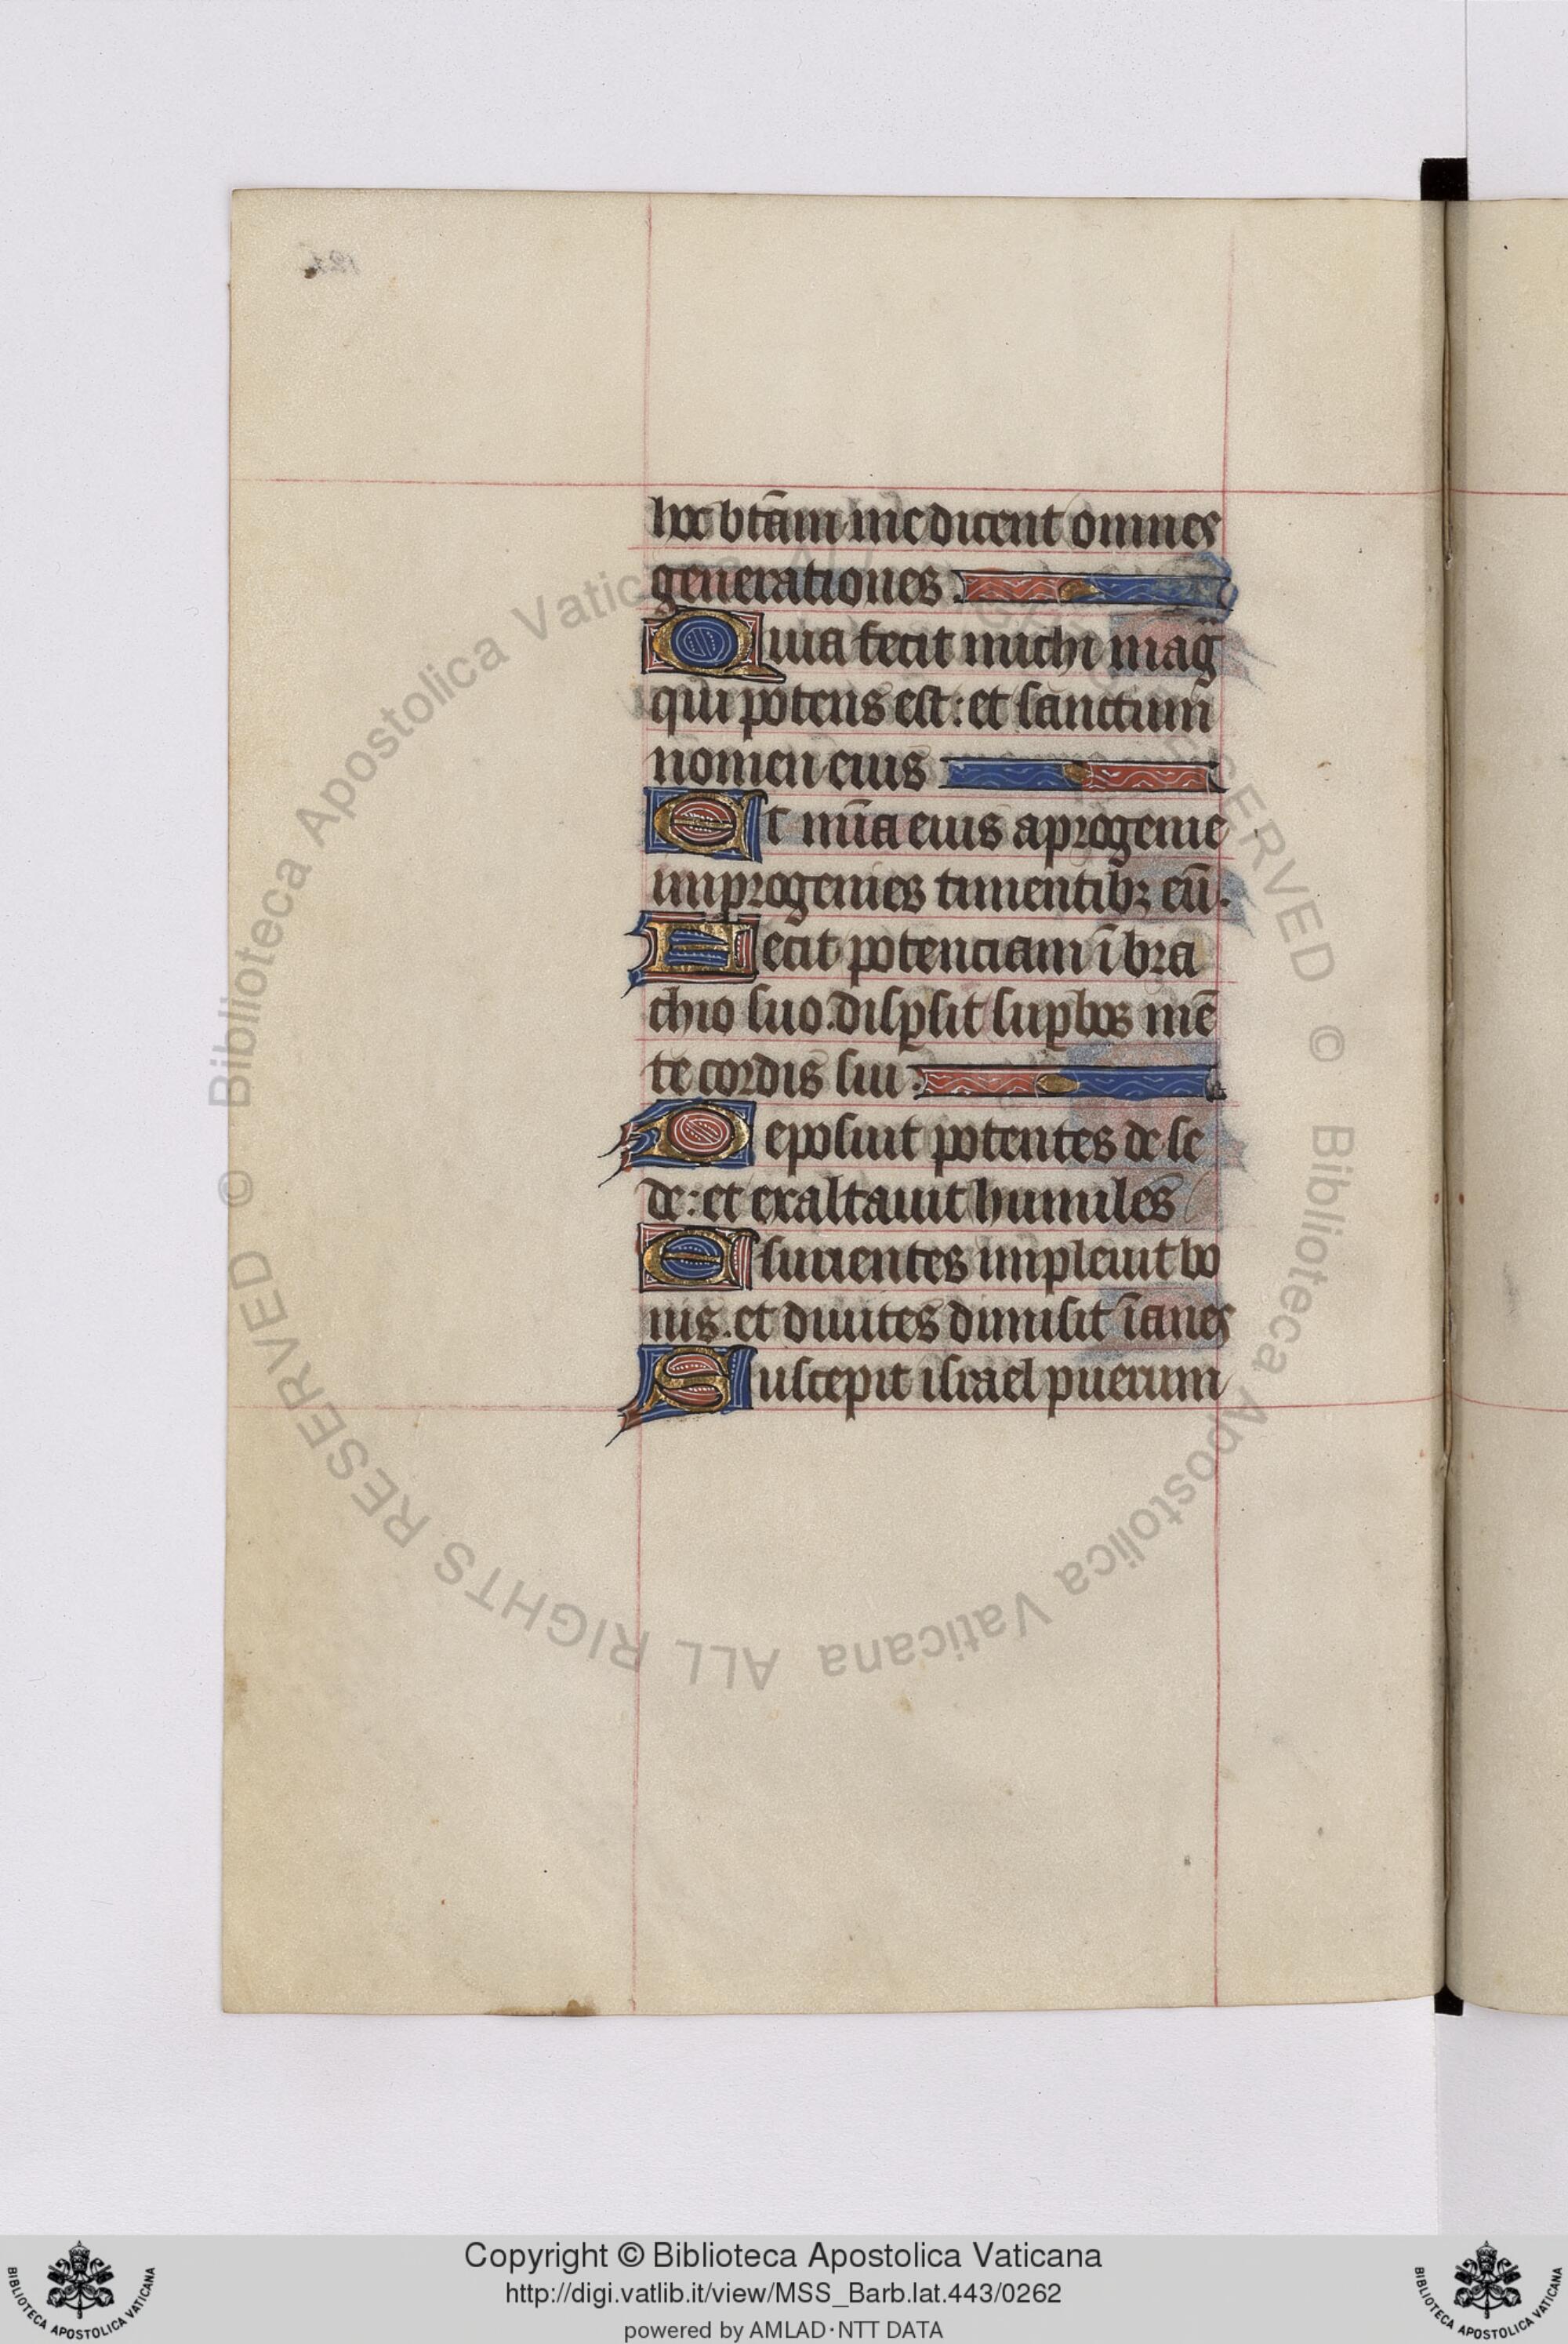 hoc btām me dicent omnes
generationes.
Quia fecit michi mag̃
qui potens est: et sanctum
nomen eius
Et mīa eius a progenie
in progenies timentibꝫ eū.
Fecit potenciam ī bra
chio suo. disꝑsit suꝑbos mē
te cordis sui.
Deposuit potentes de se
de: et exaltauit humiles
Esurientes impleuit bo
nis. et diuites dimisit īanes
Suscepit israel puerum
© Biblioteca Apostolica Vaticana ALL RIGHTS RESERVED © Biblioteca Apostolica Vaticana ALL RIGHTS RESERVED
Copyright © Biblioteca Apostolica Vaticana
http://digi.vatlib.it/view/MSS_Barb.lat.443/0262
powered by AMLAD·NTT DATA
BIBLIOTECA APOSTOLICA VATICANA
BIBLIOTECA APOSTOLICA VATICANA